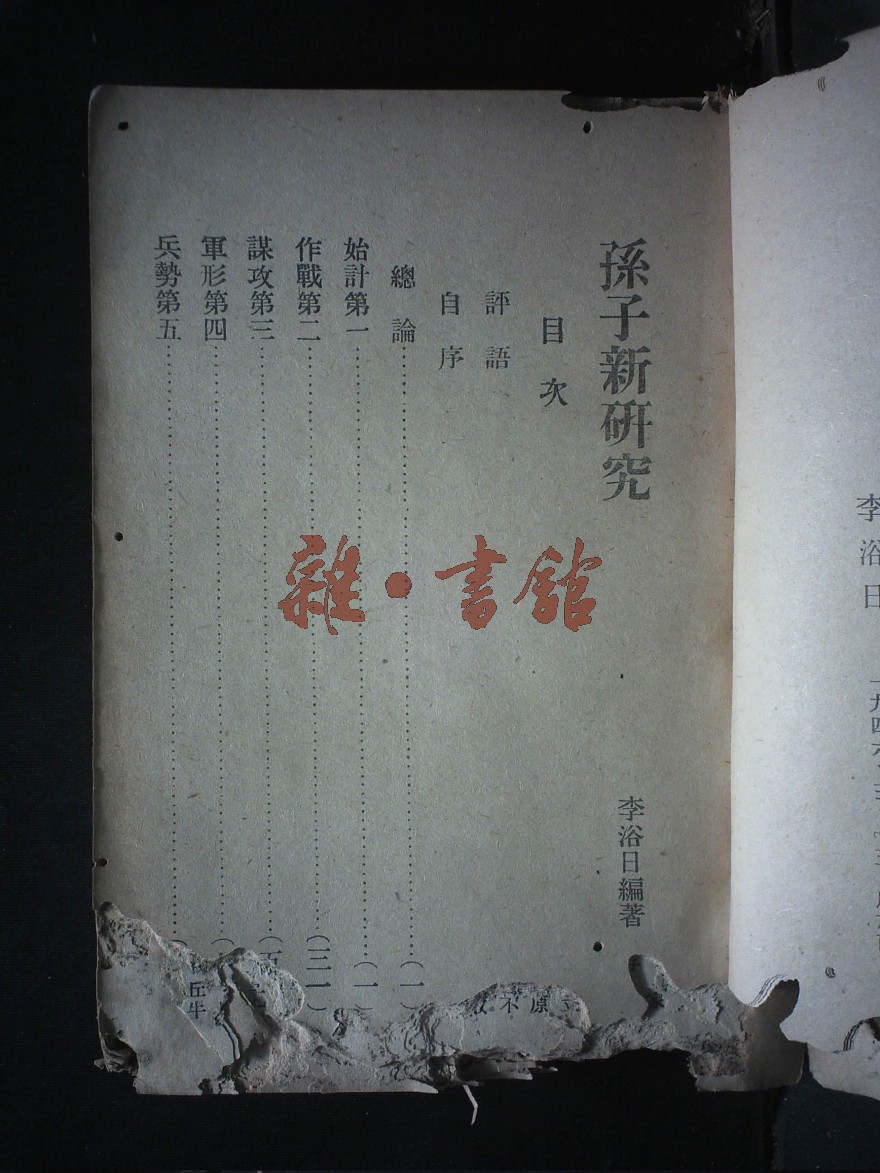 李浴日
孫子新研究
李浴日編著
目次
評語
自序
總論(一)
始計第一(一)
作戰第二(三一)
謀攻第三
軍形第四
兵勢第五
雜·書館